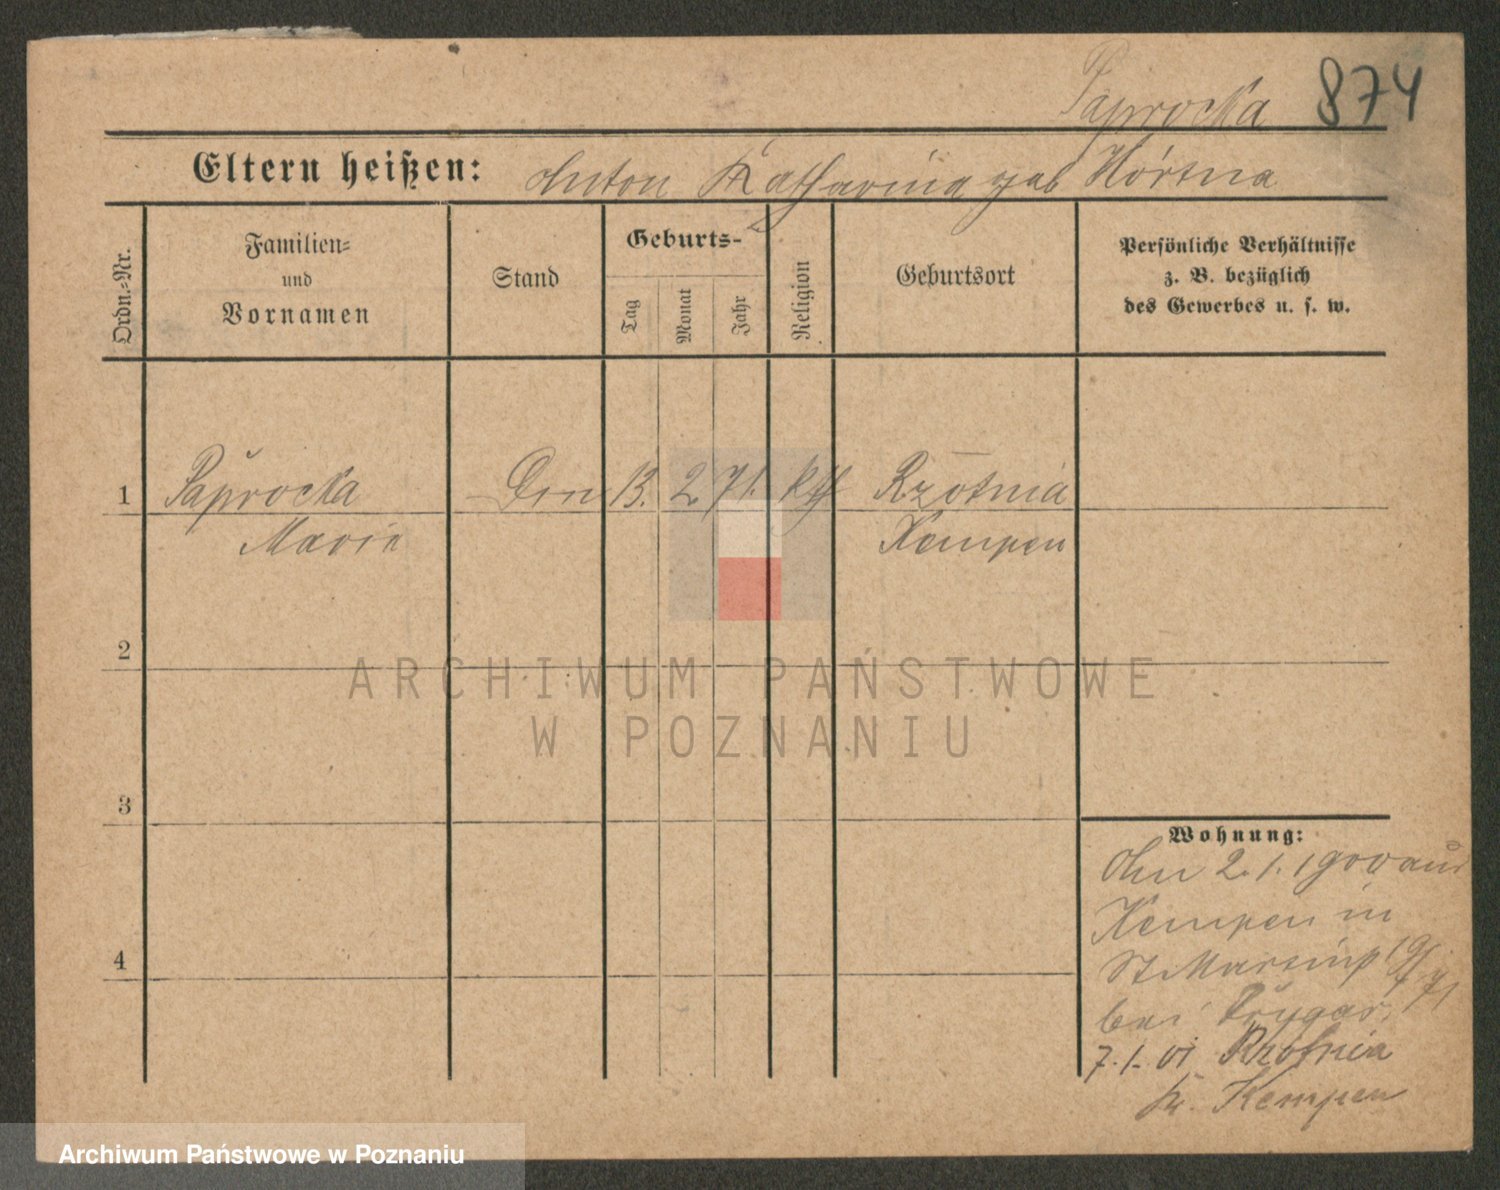 Paprocka 874
Eltern heißen: Anton Katharina geb
Ordn.-Nr.
Familien-
und
Vornamen
Stand
Geburts-
Tag
Monat
Jahr
Religion
Geburtsort
Persönliche Verhältnisse
z. B. bezüglich
des Gewerbes u. s. w.
1 Paprocka 13. 2. 71. kth Rzotnia
Marie Kempen
2
3
4
Wohnung:
2. 1. 1900 aus
Kempen in
St Martinst
bei
7. 1. 01 Rzotnia
Kr. Kempen
ARCHIWUM PAŃSTWOWE
W POZNANIU
Archiwum Państwowe w Poznaniu